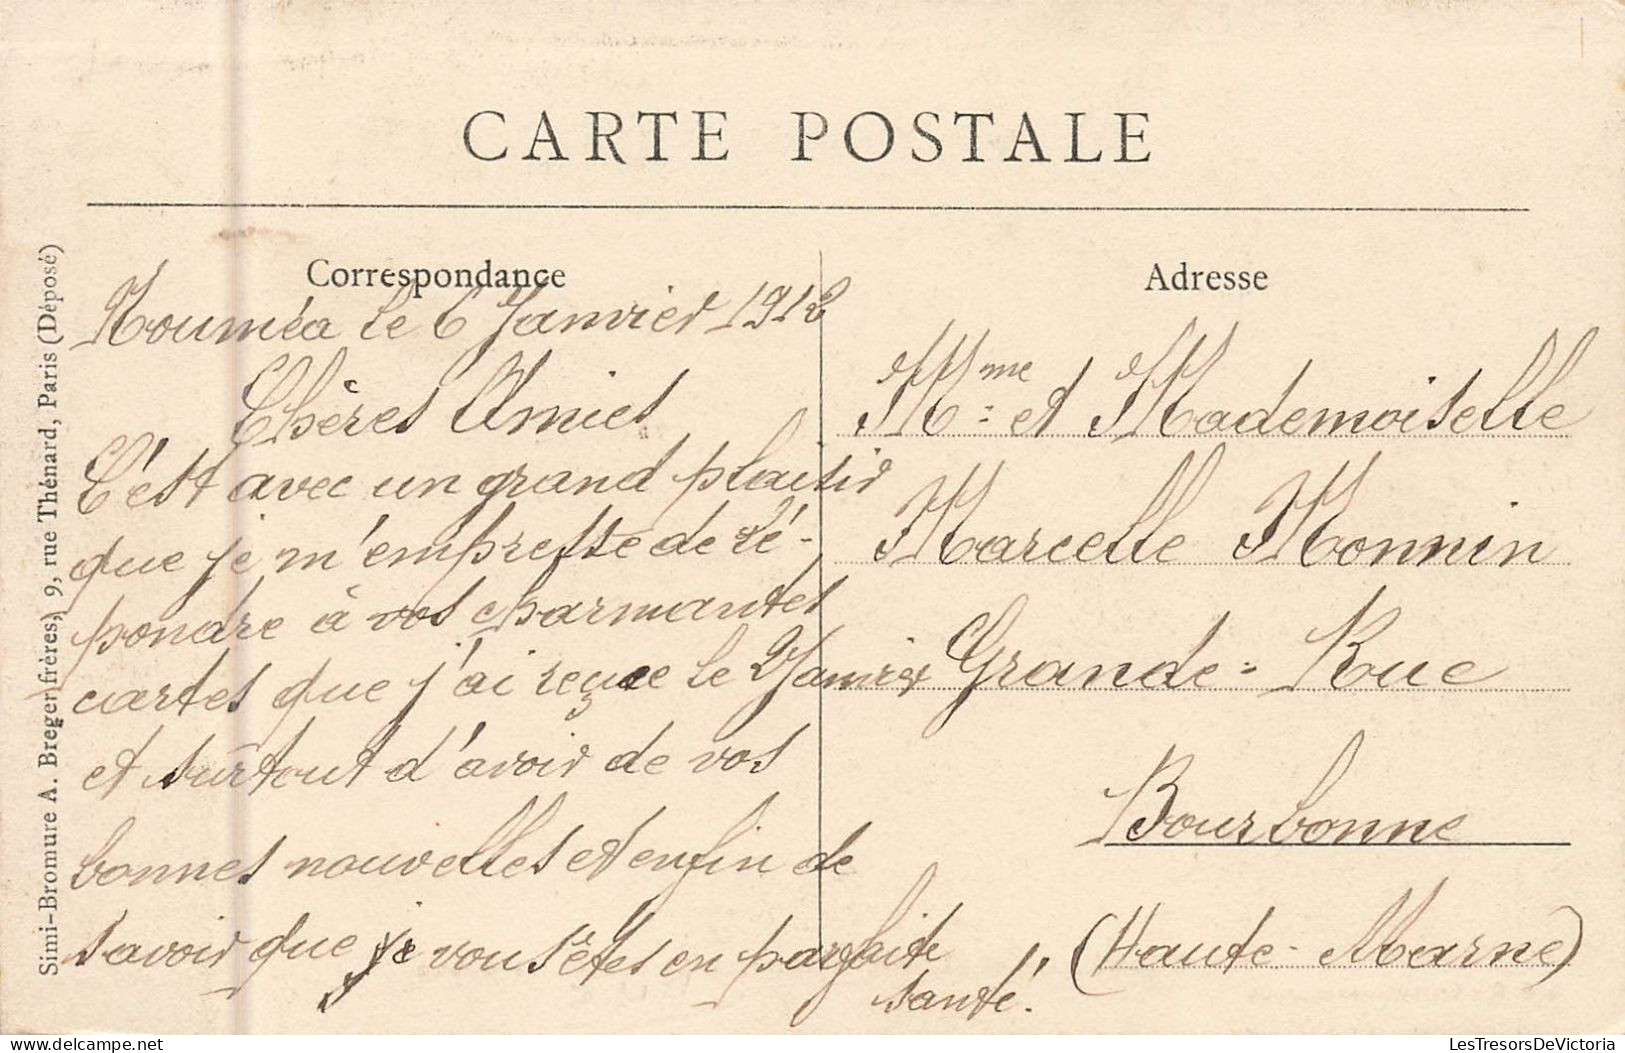 CARTE POSTALE
Correspondance
Nouméa le 6 Janvier 1912
Chères Amies
C'est avec un grand plaisir
que je m'empresse de ré-
pondre à vos charmantes
cartes que j'ai reçue le 2 Janvier
et surtout d'avoir de vos
bonnes nouvelles et enfin de
savoir que je vous êtes en parfaite
santé.
Adresse
Mme et Mademoiselle
Marcelle Monnin
Grande-Rue
Bourbonne
(Haute-Marne)
Simi-Bromure A. Breger frères, 9, rue Thénard, Paris (Déposé)
delcampe.net
LesTresorsDeVictoria